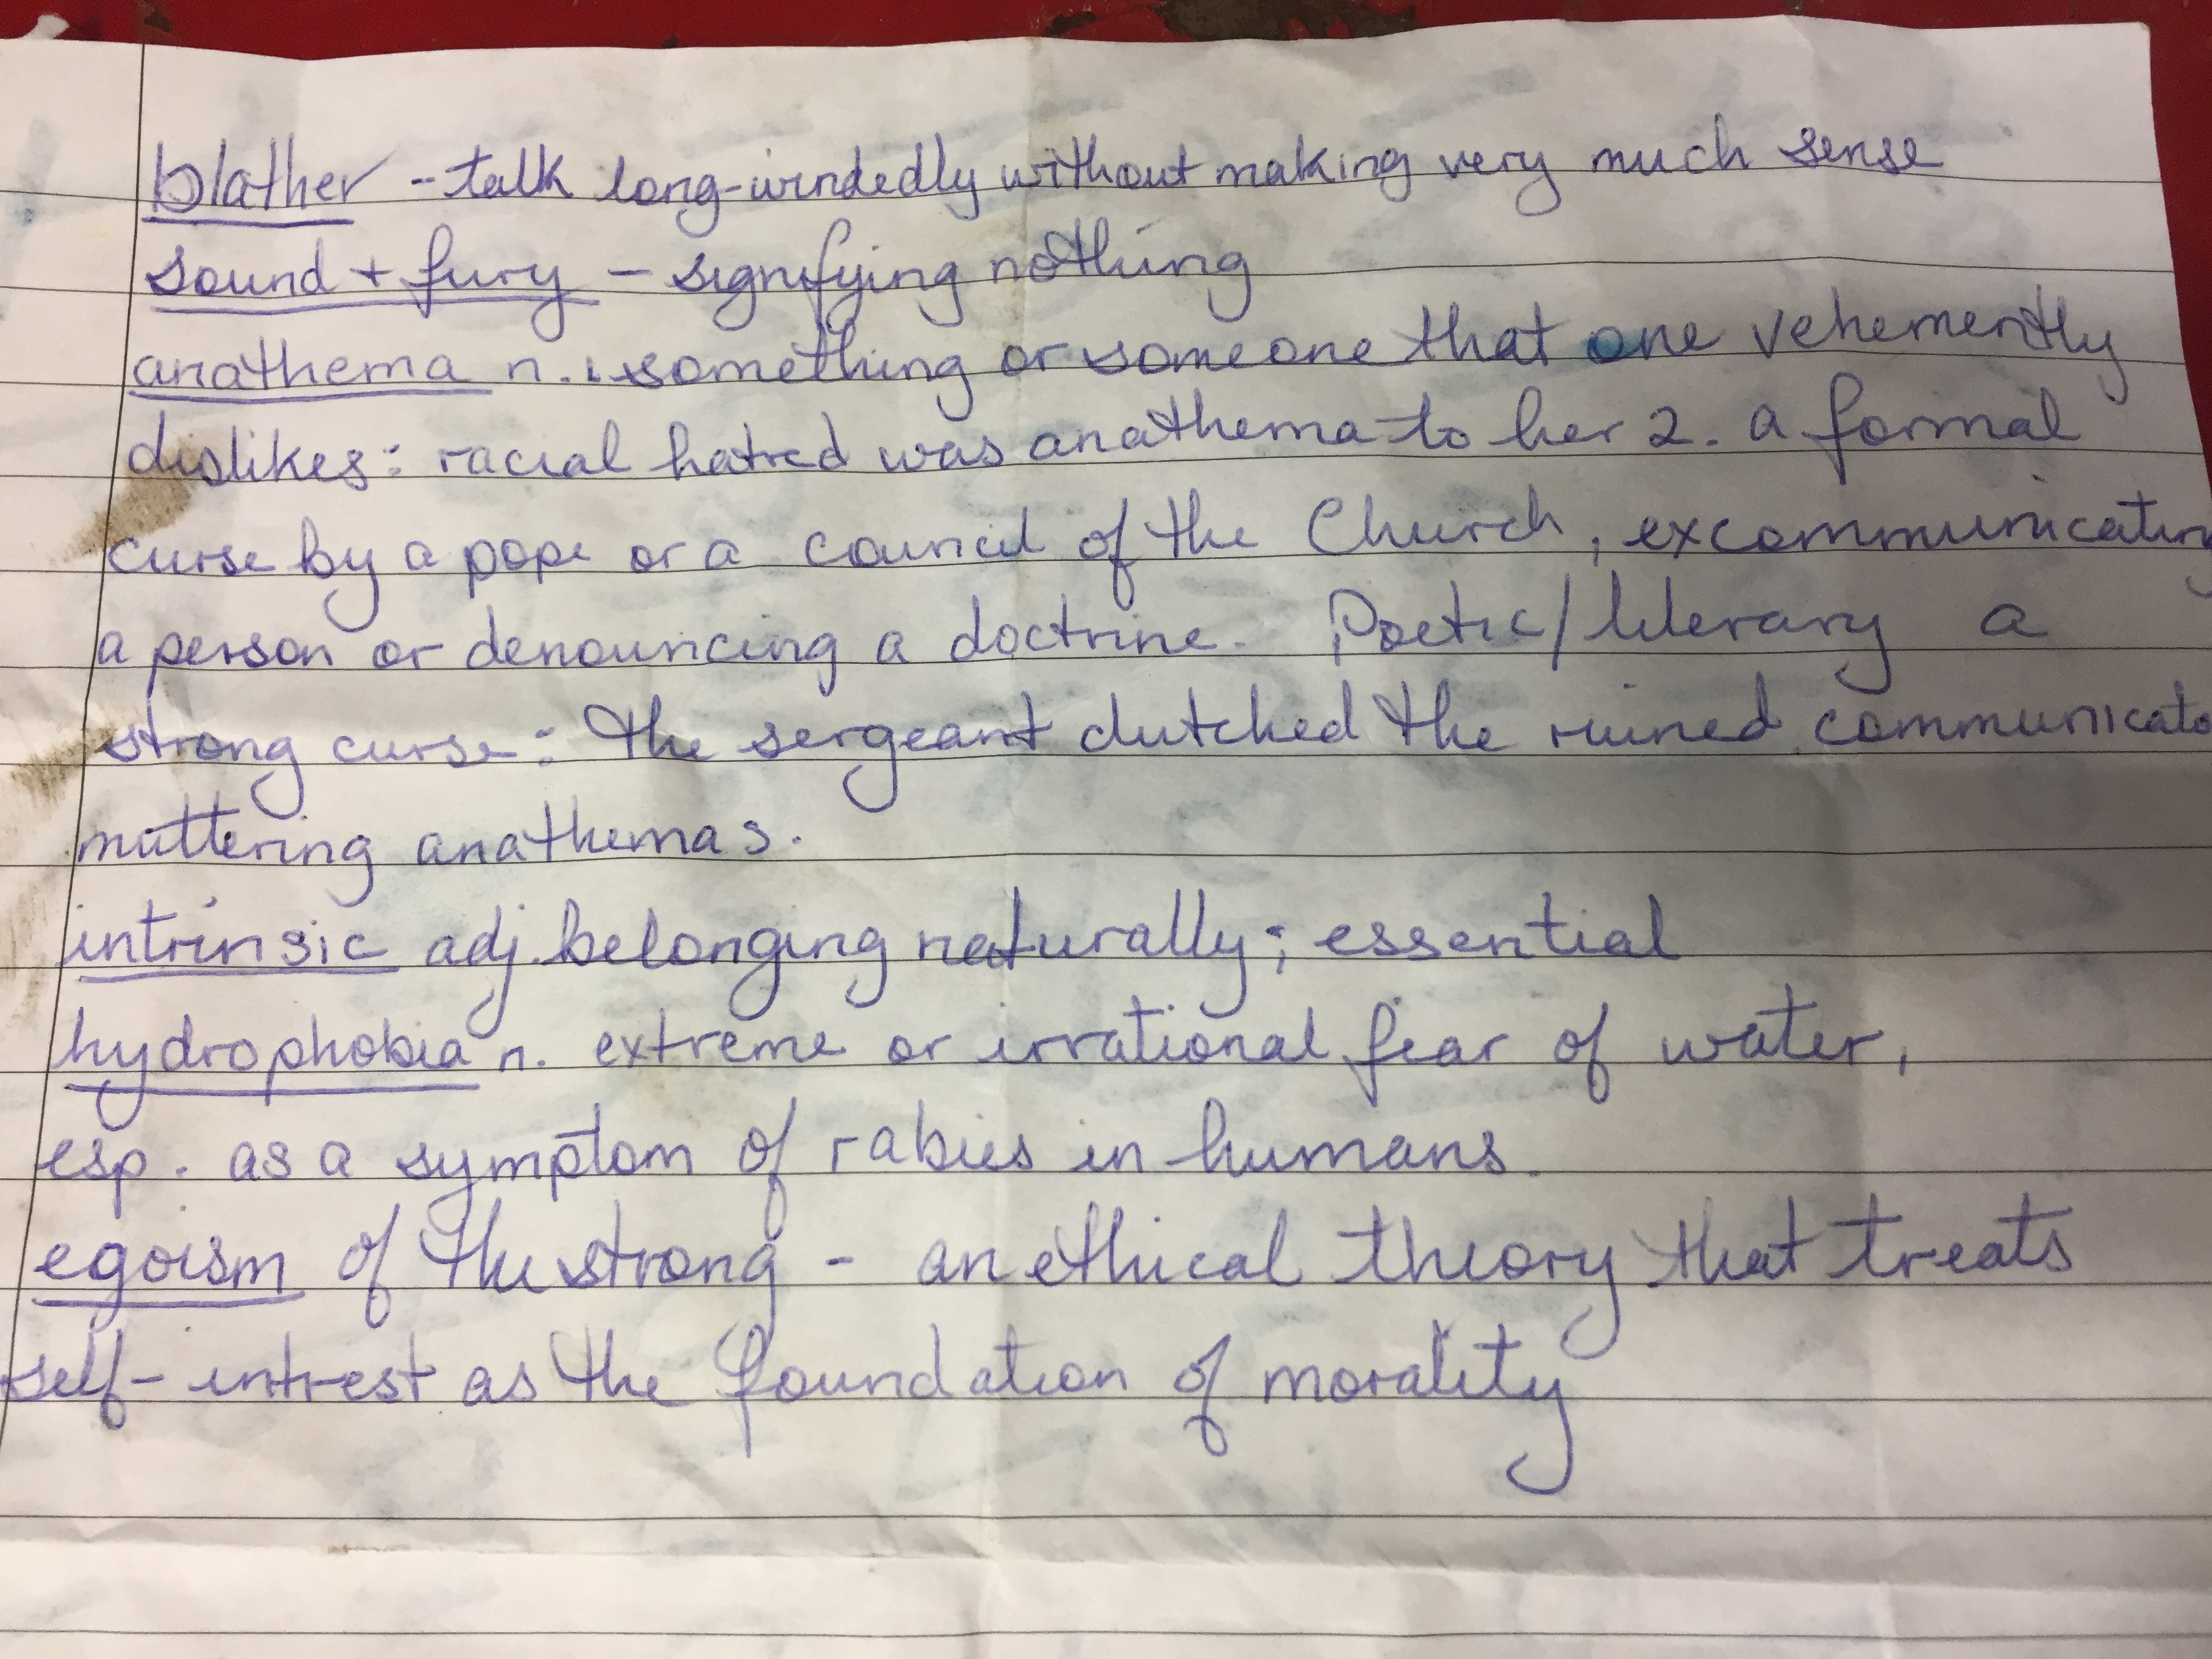 blather - talk long-windedly without making very much sense
sound + fury - signifying nothing
anathema n. 1 something or someone that one vehemently
dislikes: racial hatred was anathema to her 2. a formal
curse by a pope or a council of the Church, excommunicating
a person or denouncing a doctrine. Poetic/literary a
strong curse: the sergeant clutched the ruined communicato
muttering anathemas.
intrinsic adj. belonging naturally; essential
hydrophobia n. extreme or irrational fear of water,
esp. as a symptom of rabies in humans.
egoism of the strong - an ethical theory that treats
self-intrest as the foundation of morality